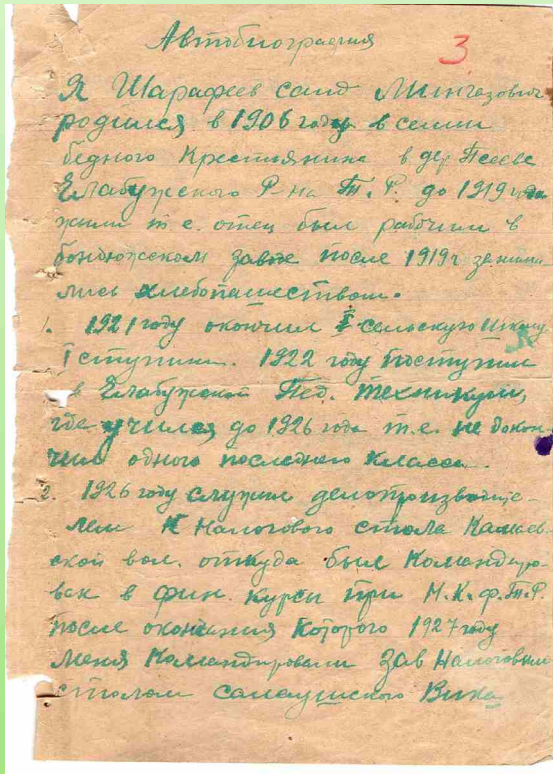 Автобиография
3
Я Шарафеев саид Мингазович
родился в 1906 году в семьи
бедного Крестьянина в дер Псееве
Елабужского Р-на Т.Р. до 1919 года
жили т.е. отец был рабочим в
бондюжском заводе после 1919 г занима
лись хлебопашеством.
1. 1921 году окончил I сельскую школу
I ступини. 1922 году поступил
в Елабужской Пед. техникум,
где учился до 1926 года т.е. не докон-
чил одного последнего класса.
2. 1926 году служил делопроизводите-
лем Налогового стола
ской вол. откуда был командиро-
ван в фин. курсы при Н.К.Ф.Т.Р.
после окончания которого 1927 году
меня Командировали Зав Налоговым
столом салаушского Вика